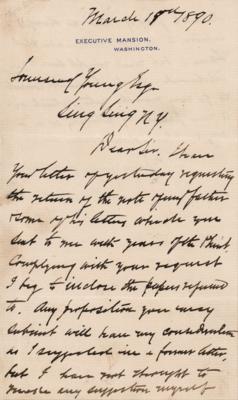 March 18th 1890.
EXECUTIVE MANSION,
WASHINGTON.
Townsend Young Esq.
Sing Sing N.Y.
Dear Sir. I have
Your letter of yesterday requesting
the return of the note of my father
& some of his letters which you
sent to me with yours of the
Complying with your request
I beg to inclose the papers referred
to. Any proposition you may
submit will have my consideration
as I suggested in a former letter,
but I have not thought to
make any suggestion myself